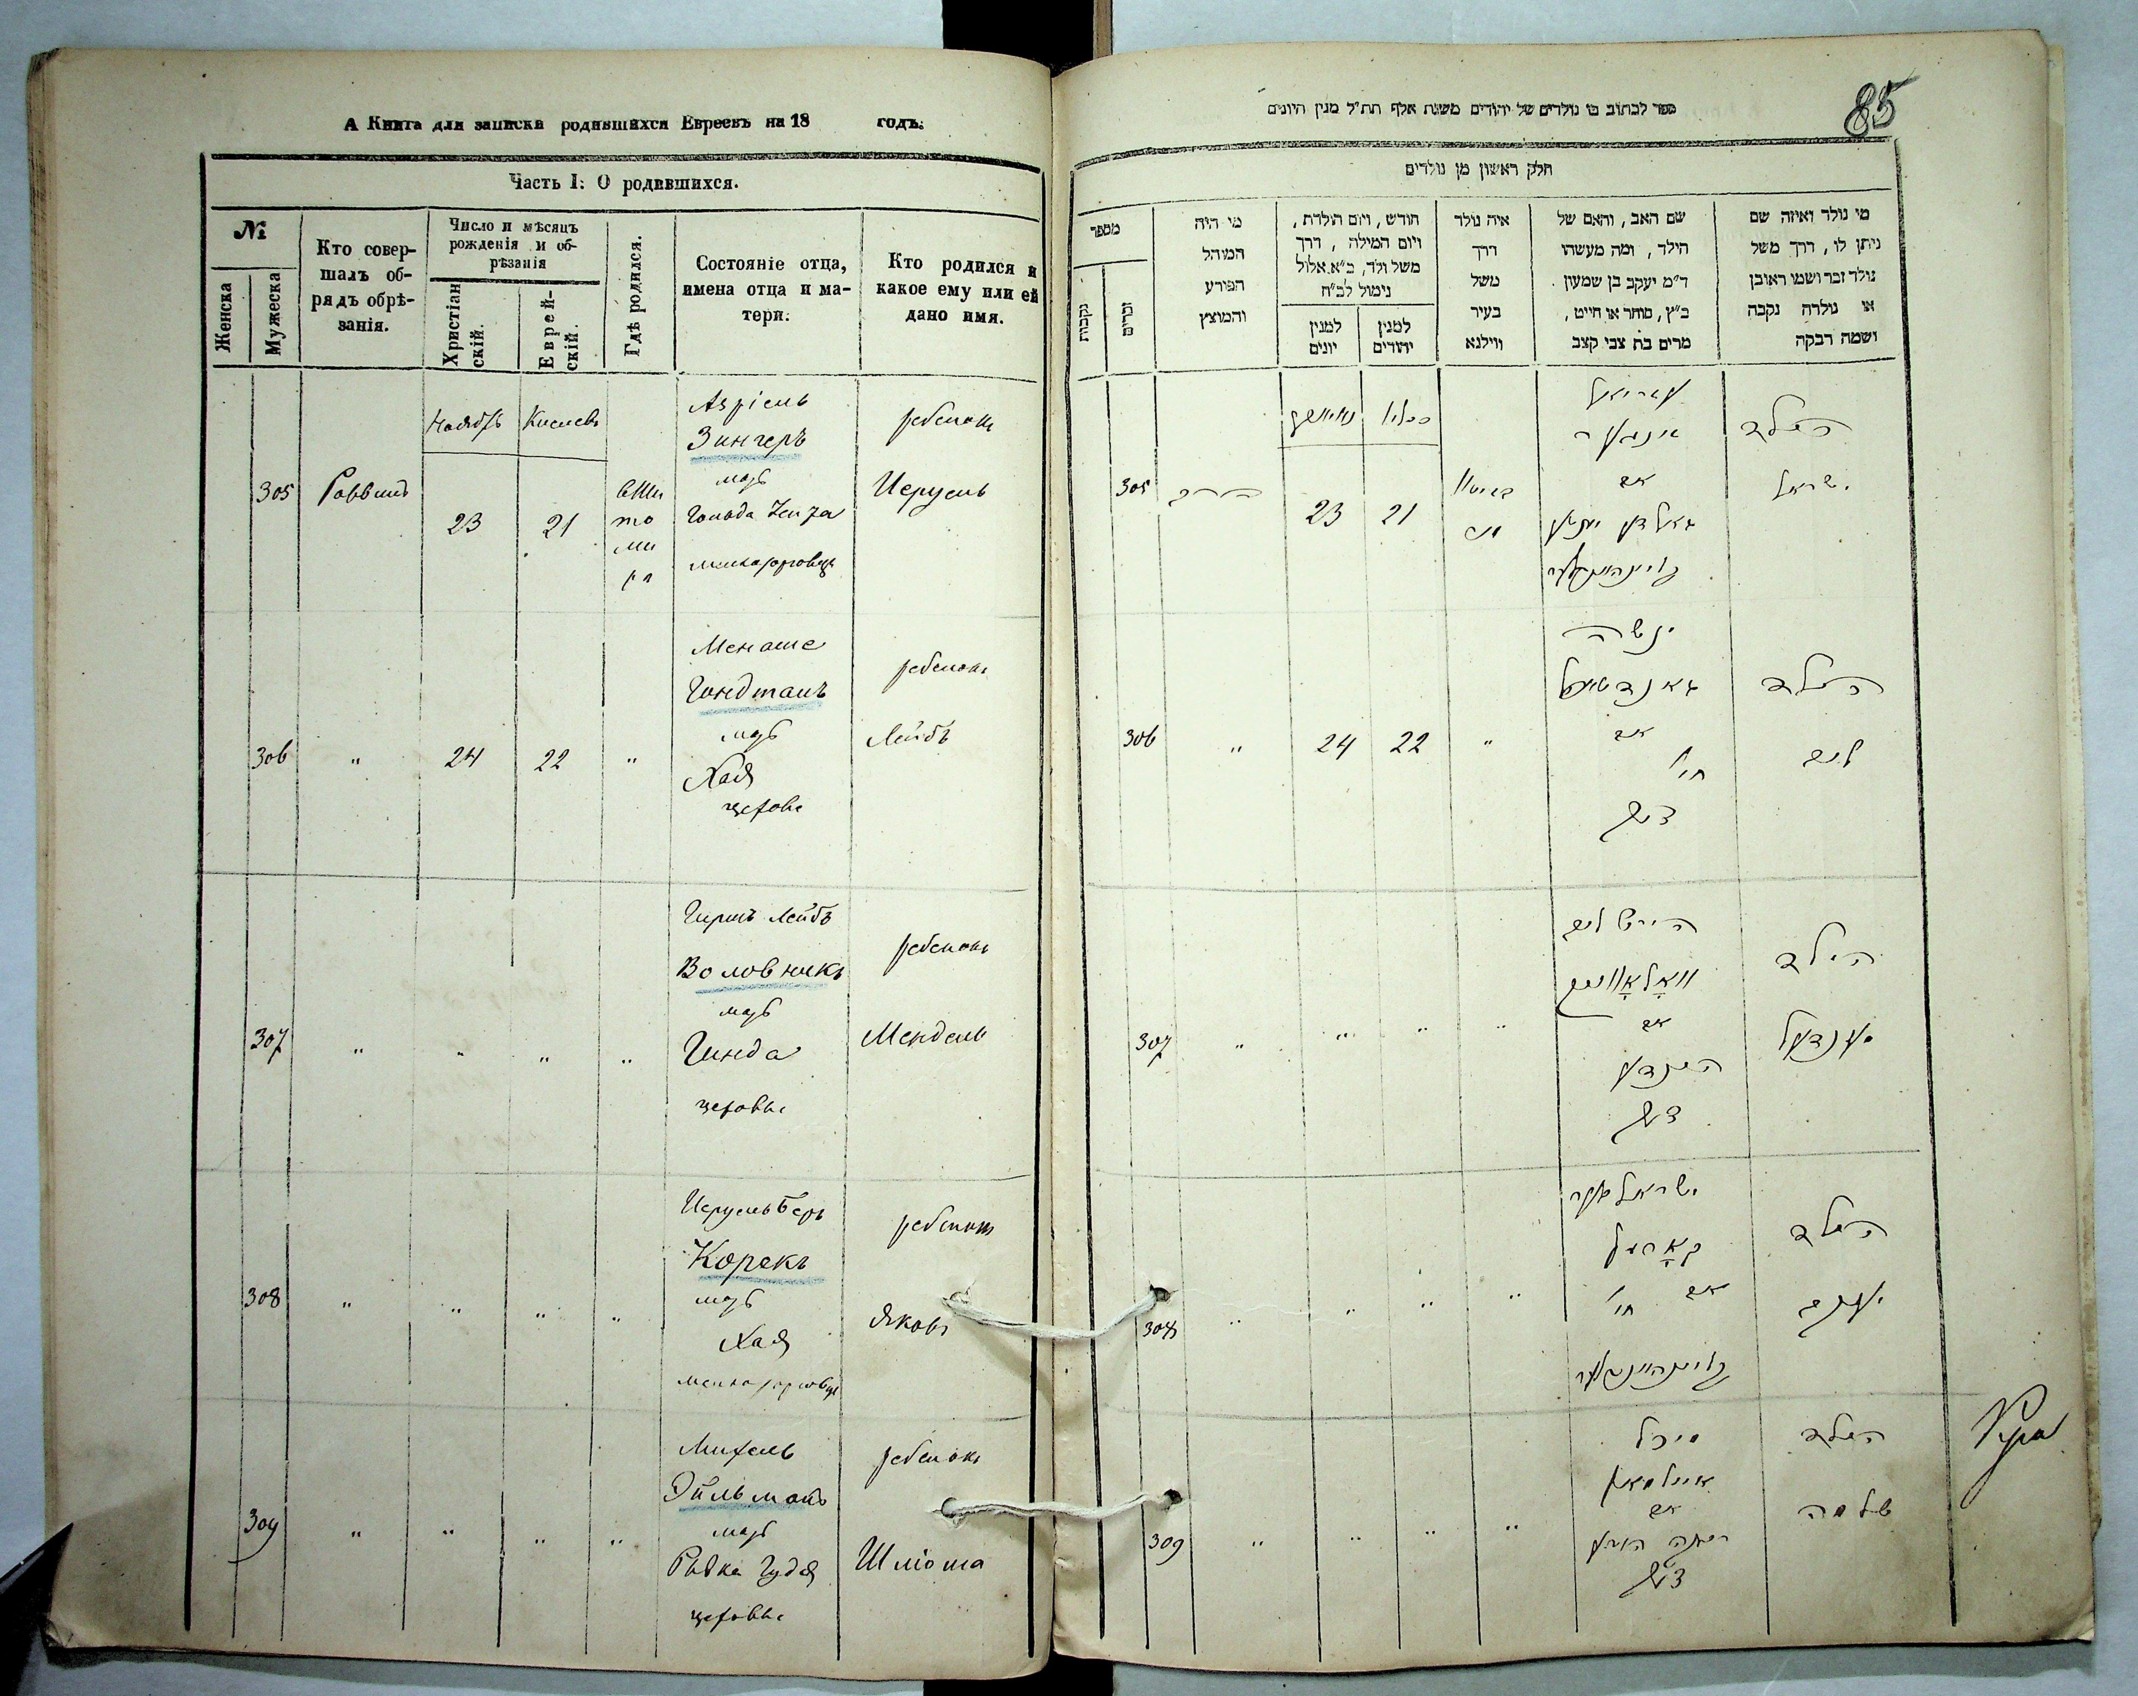 А Книга для записки родившихся Евреевъ на 18 годъ.
Часть I: О родившихся.
№
Женска
Мужеска
Кто совер-
шалъ об-
рядъ обрѣ-
занія.
Число и мѣсяцъ
рожденія и об-
рѣзанія
Христіан
скій.
Еврей-
скій.
Гдѣ родился.
Состояніе отца,
имена отца и ма-
тери.
Кто родился и
какое ему или ей
дано имя.
Ноябрь
Кислевъ
305
Раввинъ
23
21
вЖи
то
ми
ра
Азріель
Зингеръ
мать
Гольда
ребенокъ
Исруель
306
"
24
22
"
Менаше
мать
Хая
ребенокъ
Лейбъ
307
"
"
"
"
Гиршъ Лейбъ
Воловникъ
мать
Гинда
ребенокъ
Мендель
308
"
"
"
"
Исруель Беръ
Корекъ
мать
Хая
ребенокъ
Яковъ
309
"
"
"
"
Михель
Эйльманъ
мать
Рывка Гудя
ребенокъ
Шліома
85
ספר לכתוב בו נולדים של יהודים משנת אלף תת״ל מנין היונים
חלק ראשון מן נולדים
מי נולד ואיזה שם
ניתן לו, דרך משל
נולד זכר ושמו ראובן
או נולדה נקבה
ושמה רבקה
שם האב, והאם של
הילד, ומה מעשהו
ד״מ יעקב בן שמעון
כ״ץ, סוחר או חייט,
מרים בת צבי קצב
איה נולד
דרך
משל
בעיר
ווילנא
חודש, ויום הולדת,
ויום המילה, דרך
משל ולד, כ״א אלול
נימול לכ״ח
למנין
יהודים
למנין
יונים
מי היה
המוהל
הפורע
והמוצץ
מספר
זכרים
נקבות
הילד
ישראל
אם
כסליו
21
23
הרב
305
הילד
ליב
מנשה
אם
חי׳
"
22
24
"
306
הילד
מענדעל
הירש ליב
וואלאווניק
אם
הינדע
"
"
"
"
307
הילד
יעקב
ישראל בער
קאריק
אם
חי׳
"
"
"
"
308
הילד
שלמה
מיכל
אײלמאן
אם
רבקה הודע
"
"
"
"
309